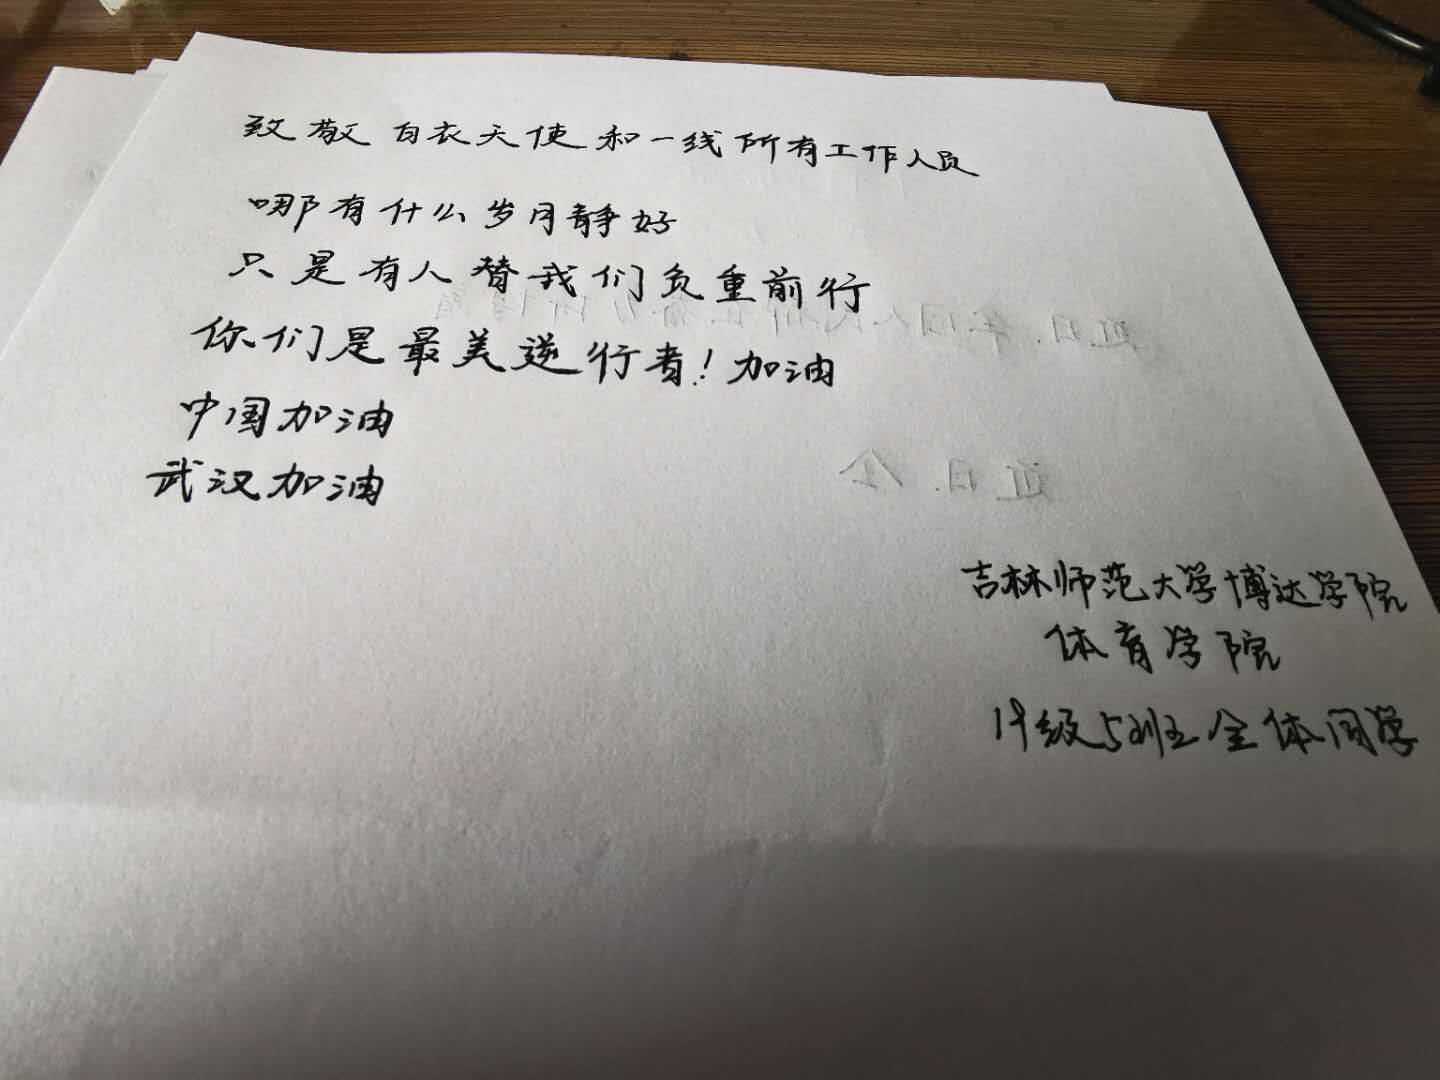 致敬白衣天使和一线所有工作人员
哪有什么岁月静好
只是有人替我们负重前行
你们是最美逆行者！加油
中国加油
武汉加油
吉林师范大学博达学院
体育学院
19级5班全体同学